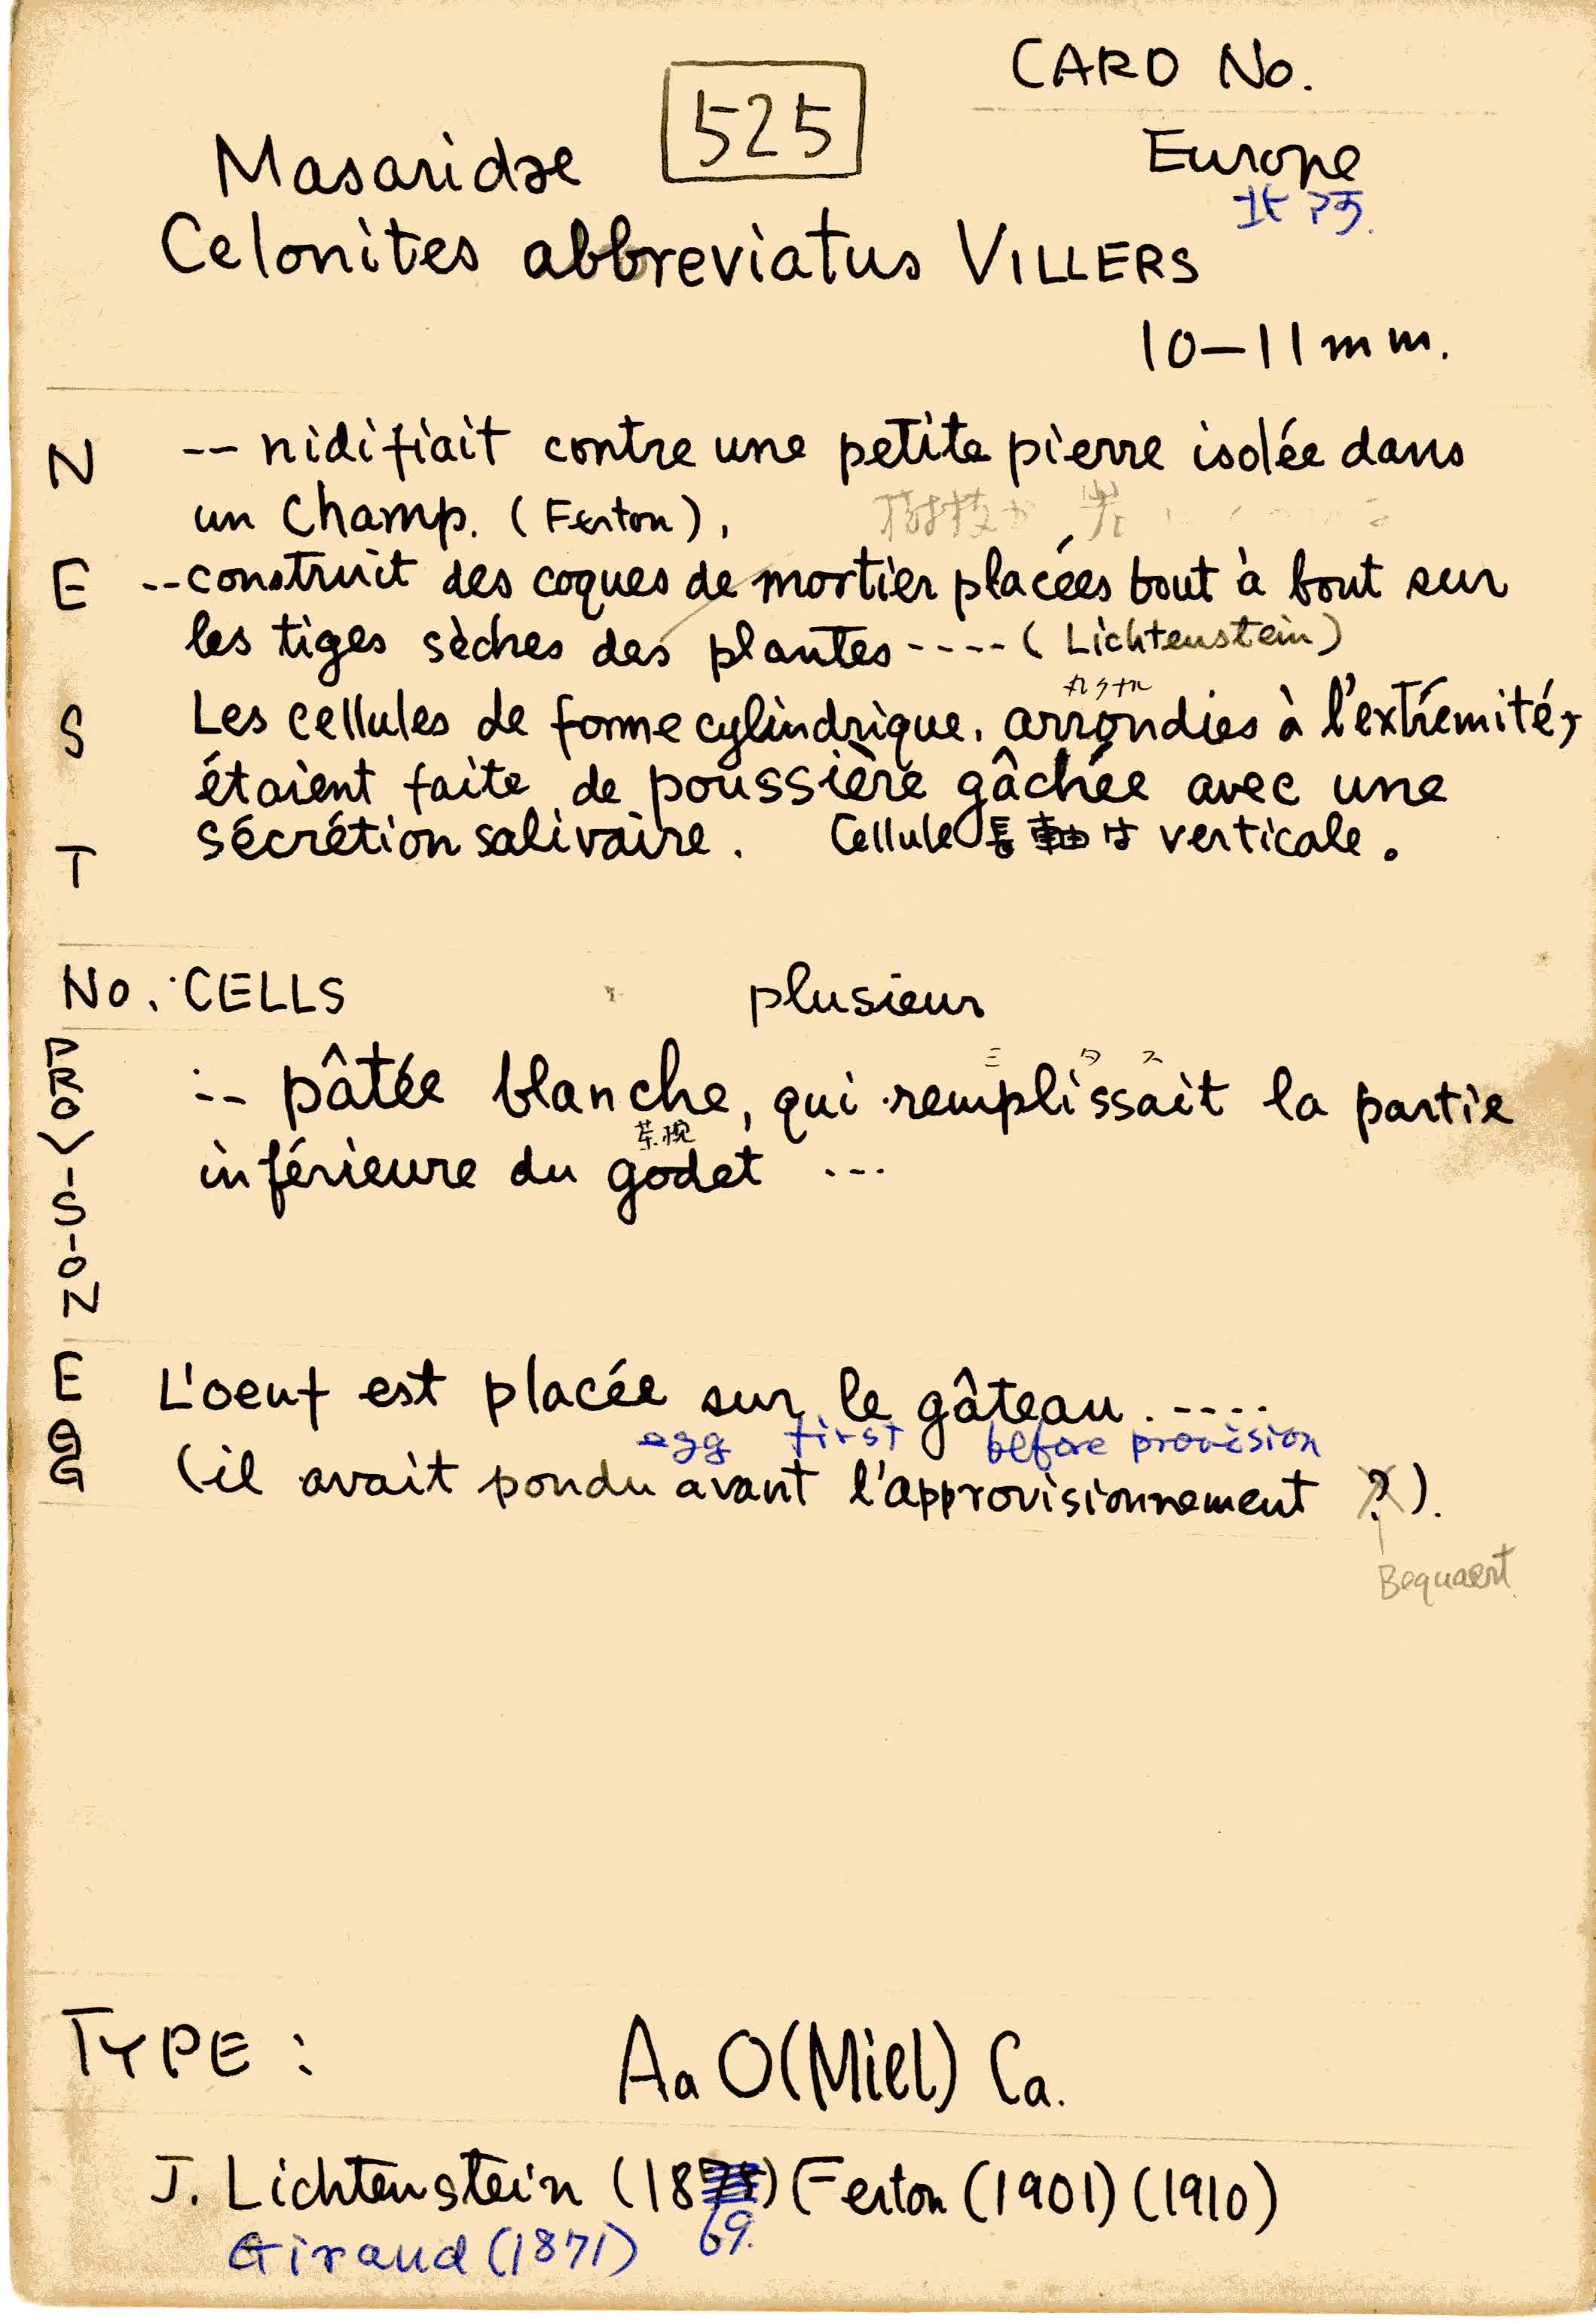 CARD No.
525
Masaridae
Europe
北阿.
Celonites abbreviatus VILLERS
10-11mm.
NEST
-- nidifiait contre une petite pierre isolée dans
un champ. (Ferton),
--construit des coques de mortier placées bout à bout sur
les tiges sèches des plantes---- (Lichtenstein)
Les cellules de forme cylindrique, arrondies à l'extrémité,
étaient faite de poussière gâchée avec une
sécrétion salivaire. Cellule 長軸は verticale.
No. CELLS plusieur
PROVISION
-- pâtée blanche, qui remplissait la partie
ミタス
茶椀
inférieure du godet ---
EGG
L'oeuf est placée sur le gâteau. ----
egg first before provision
(il avait pondu avant l'approvisionnement ?).
Bequaert
TYPE: Aa O(Miel) Ca.
J. Lichtenstein (18 69.) Ferton (1901) (1910)
Giraud (1871)